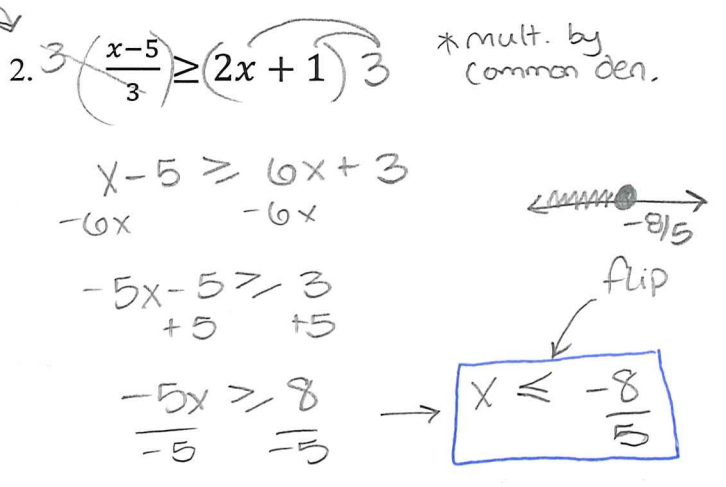 2. 3 (x−5/3) ≥ (2x + 1) 3
* mult. by
common den.
x−5 ≥ 6x + 3
−6x −6x
−8/5
−5x−5 ≥ 3
flip
+5 +5
−5x ≥ 8 → x ≤ −8/5
−5 −5